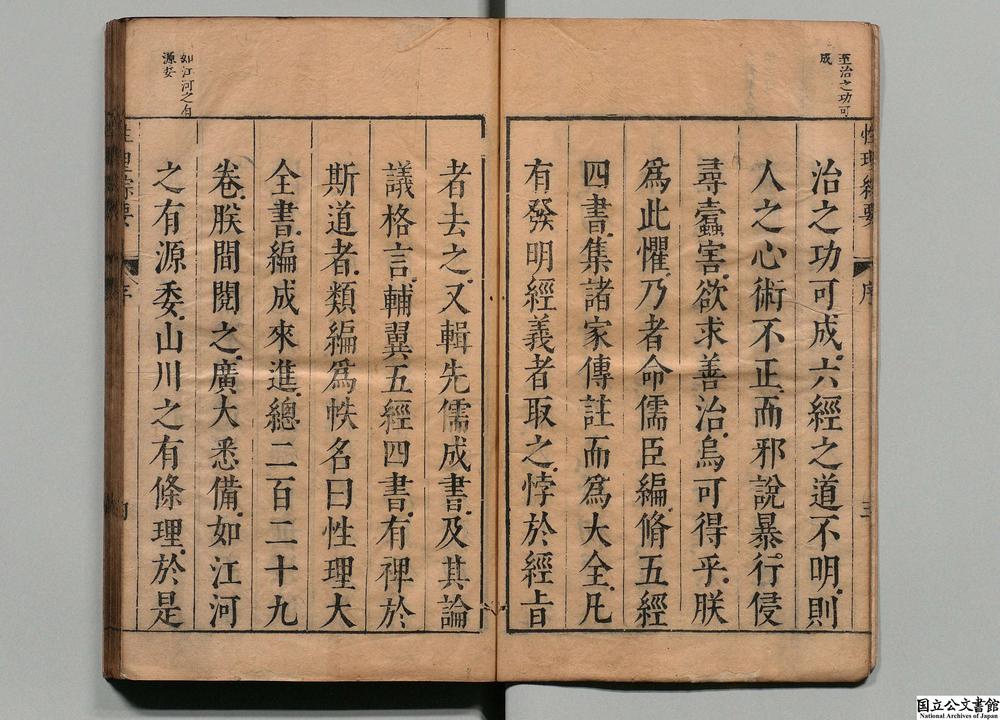 至治之功可
成
性理綜要
序
三
治之功可成。六經之道不明。則
人之心術不正。而邪說暴行侵
尋蠹害。欲求善治。烏可得乎。朕
爲此懼。乃者命儒臣編脩五經
四書。集諸家傳註而爲大全。凡
有發明經義者取之。悖於經旨
者去之。又輯先儒成書。及其論
議格言。輔翼五經四書。有裨於
斯道者。類編爲帙。名曰性理大
全書。編成來進。總二百二十九
卷。朕間閱之。廣大悉備。如江河
之有源委。山川之有條理。於是
如江河之有
源委
性理綜要
序
国立公文書館
National Archives of Japan